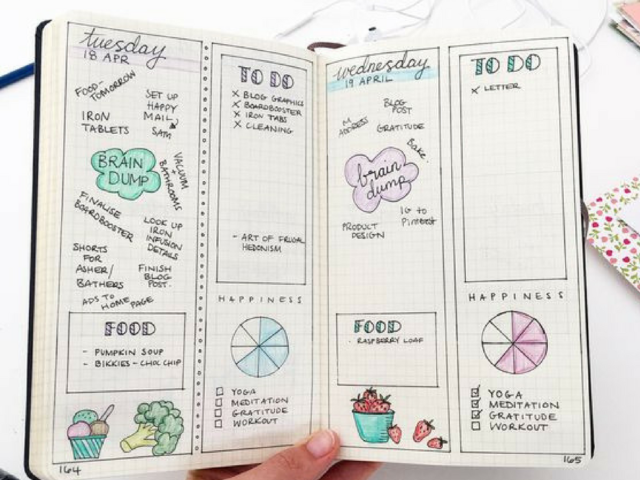 tuesday
18 APR
FOOD-
TOMORROW
SET UP
HAPPY
MAIL
IRON
TABLETS
BRAIN
DUMP
VACUUM
+
BATHROOMS
FINALISE
BOARDBOOSTER
LOOK UP
IRON
INFUSION
DETAILS
SHORTS
FOR
ASHER/
BATHERS
FINISH
BLOG
POST.
ADS TO
HOME PAGE
FOOD
- PUMPKIN SOUP
- BIKKIES - CHOC CHIP
164
TO DO
X BLOG GRAPHICS
X BOARDBOOSTER
X IRON TABS
X CLEANING
- ART OF FRUGAL
HEDONISM
HAPPINESS
YOGA
MEDITATION
GRATITUDE
WORKOUT
wednesday
19 APRIL
BLOG
POST
M
ADDRESS
GRATITUDE
Bake
brain
dump
IG to
Pinterest
PRODUCT
DESIGN
FOOD
- RASPBERRY LOAF
TO DO
X LETTER
HAPPINESS
YOGA
MEDITATION
GRATITUDE
WORKOUT
165